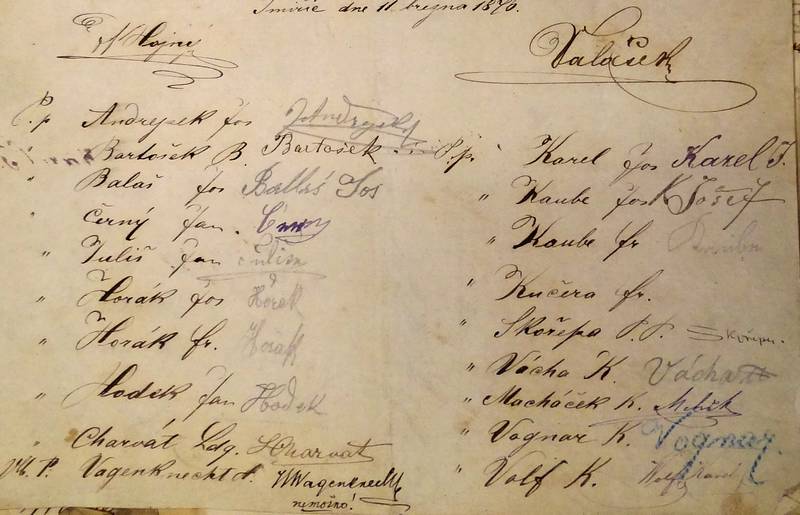 Smiřic dne 11. března 1896.
Hojný
Valášek
P. p Andrejsek Jos J Andrejsek
" Bartošek B. Bartošek
" Balaš Jos Ballaš Jos
" Černý Jan. Černy
" Juliš Jan Juliš
" Horák Jos Horák
" Horák fr. Horák
" Hodek Jan Hodek
" Charvát Ldg. Charvat
P. Vagenknecht A. Wagenknecht
nemožno!
P. p. Karel Jos Karel J.
" Kaube Jos K Josef
" Kaube fr Kaube
" Kučera fr.
" Skořepa Skořepa.
" Vácha K. Vácha
" Macháček K.
" Vognar K. Vognar
" Volf K. Wolf Karel